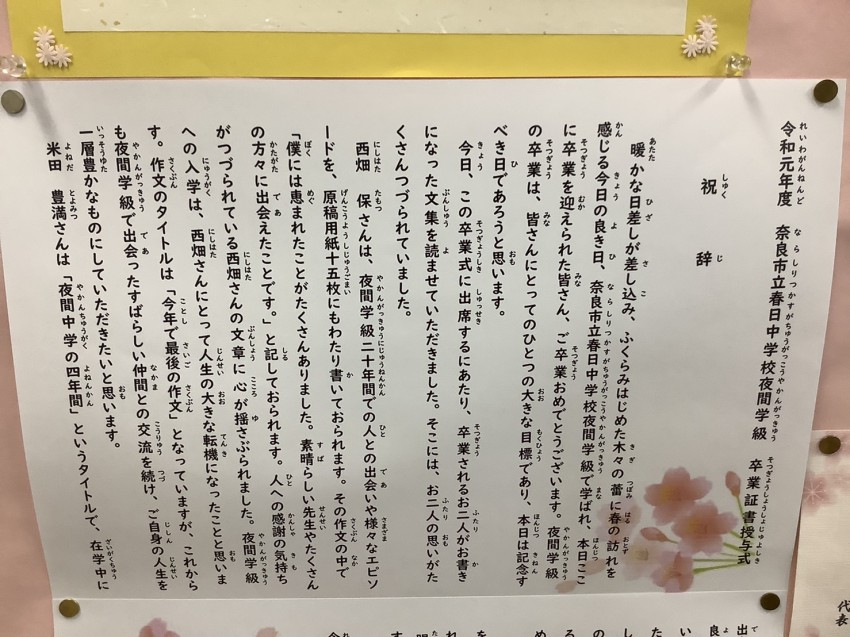 令和元年度　奈良市立春日中学校夜間学級　卒業証書授与式
祝　辞
暖かな日差しが差し込み、ふくらみはじめた木々の蕾に春の訪れを
感じる今日の良き日、奈良市立春日中学校夜間学級で学ばれ、本日ここ
に卒業を迎えられた皆さん、ご卒業おめでとうございます。夜間学級
の卒業は、皆さんにとってのひとつの大きな目標であり、本日は記念す
べき日であろうと思います。
今日、この卒業式に出席するにあたり、卒業されるお二人がお書き
になった文集を読ませていただきました。そこには、お二人の思いがた
くさんつづられていました。
西畑　保さんは、夜間学級二十年間での人との出会いや様々なエピソ
ードを、原稿用紙十五枚にもわたり書いておられます。その作文の中で
「僕には恵まれたことがたくさんありました。素晴らしい先生やたくさん
の方々に出会えたことです。」と記しておられます。人への感謝の気持ち
がつづられている西畑さんの文章に心が揺さぶられました。夜間学級
への入学は、西畑さんにとって人生の大きな転機になったことと思いま
す。作文のタイトルは「今年で最後の作文」となっていますが、これから
も夜間学級で出会ったすばらしい仲間との交流を続け、ご自身の人生を
一層豊かなものにしていただきたいと思います。
米田　豊満さんは「夜間中学の四年間」というタイトルで、在学中に
代表